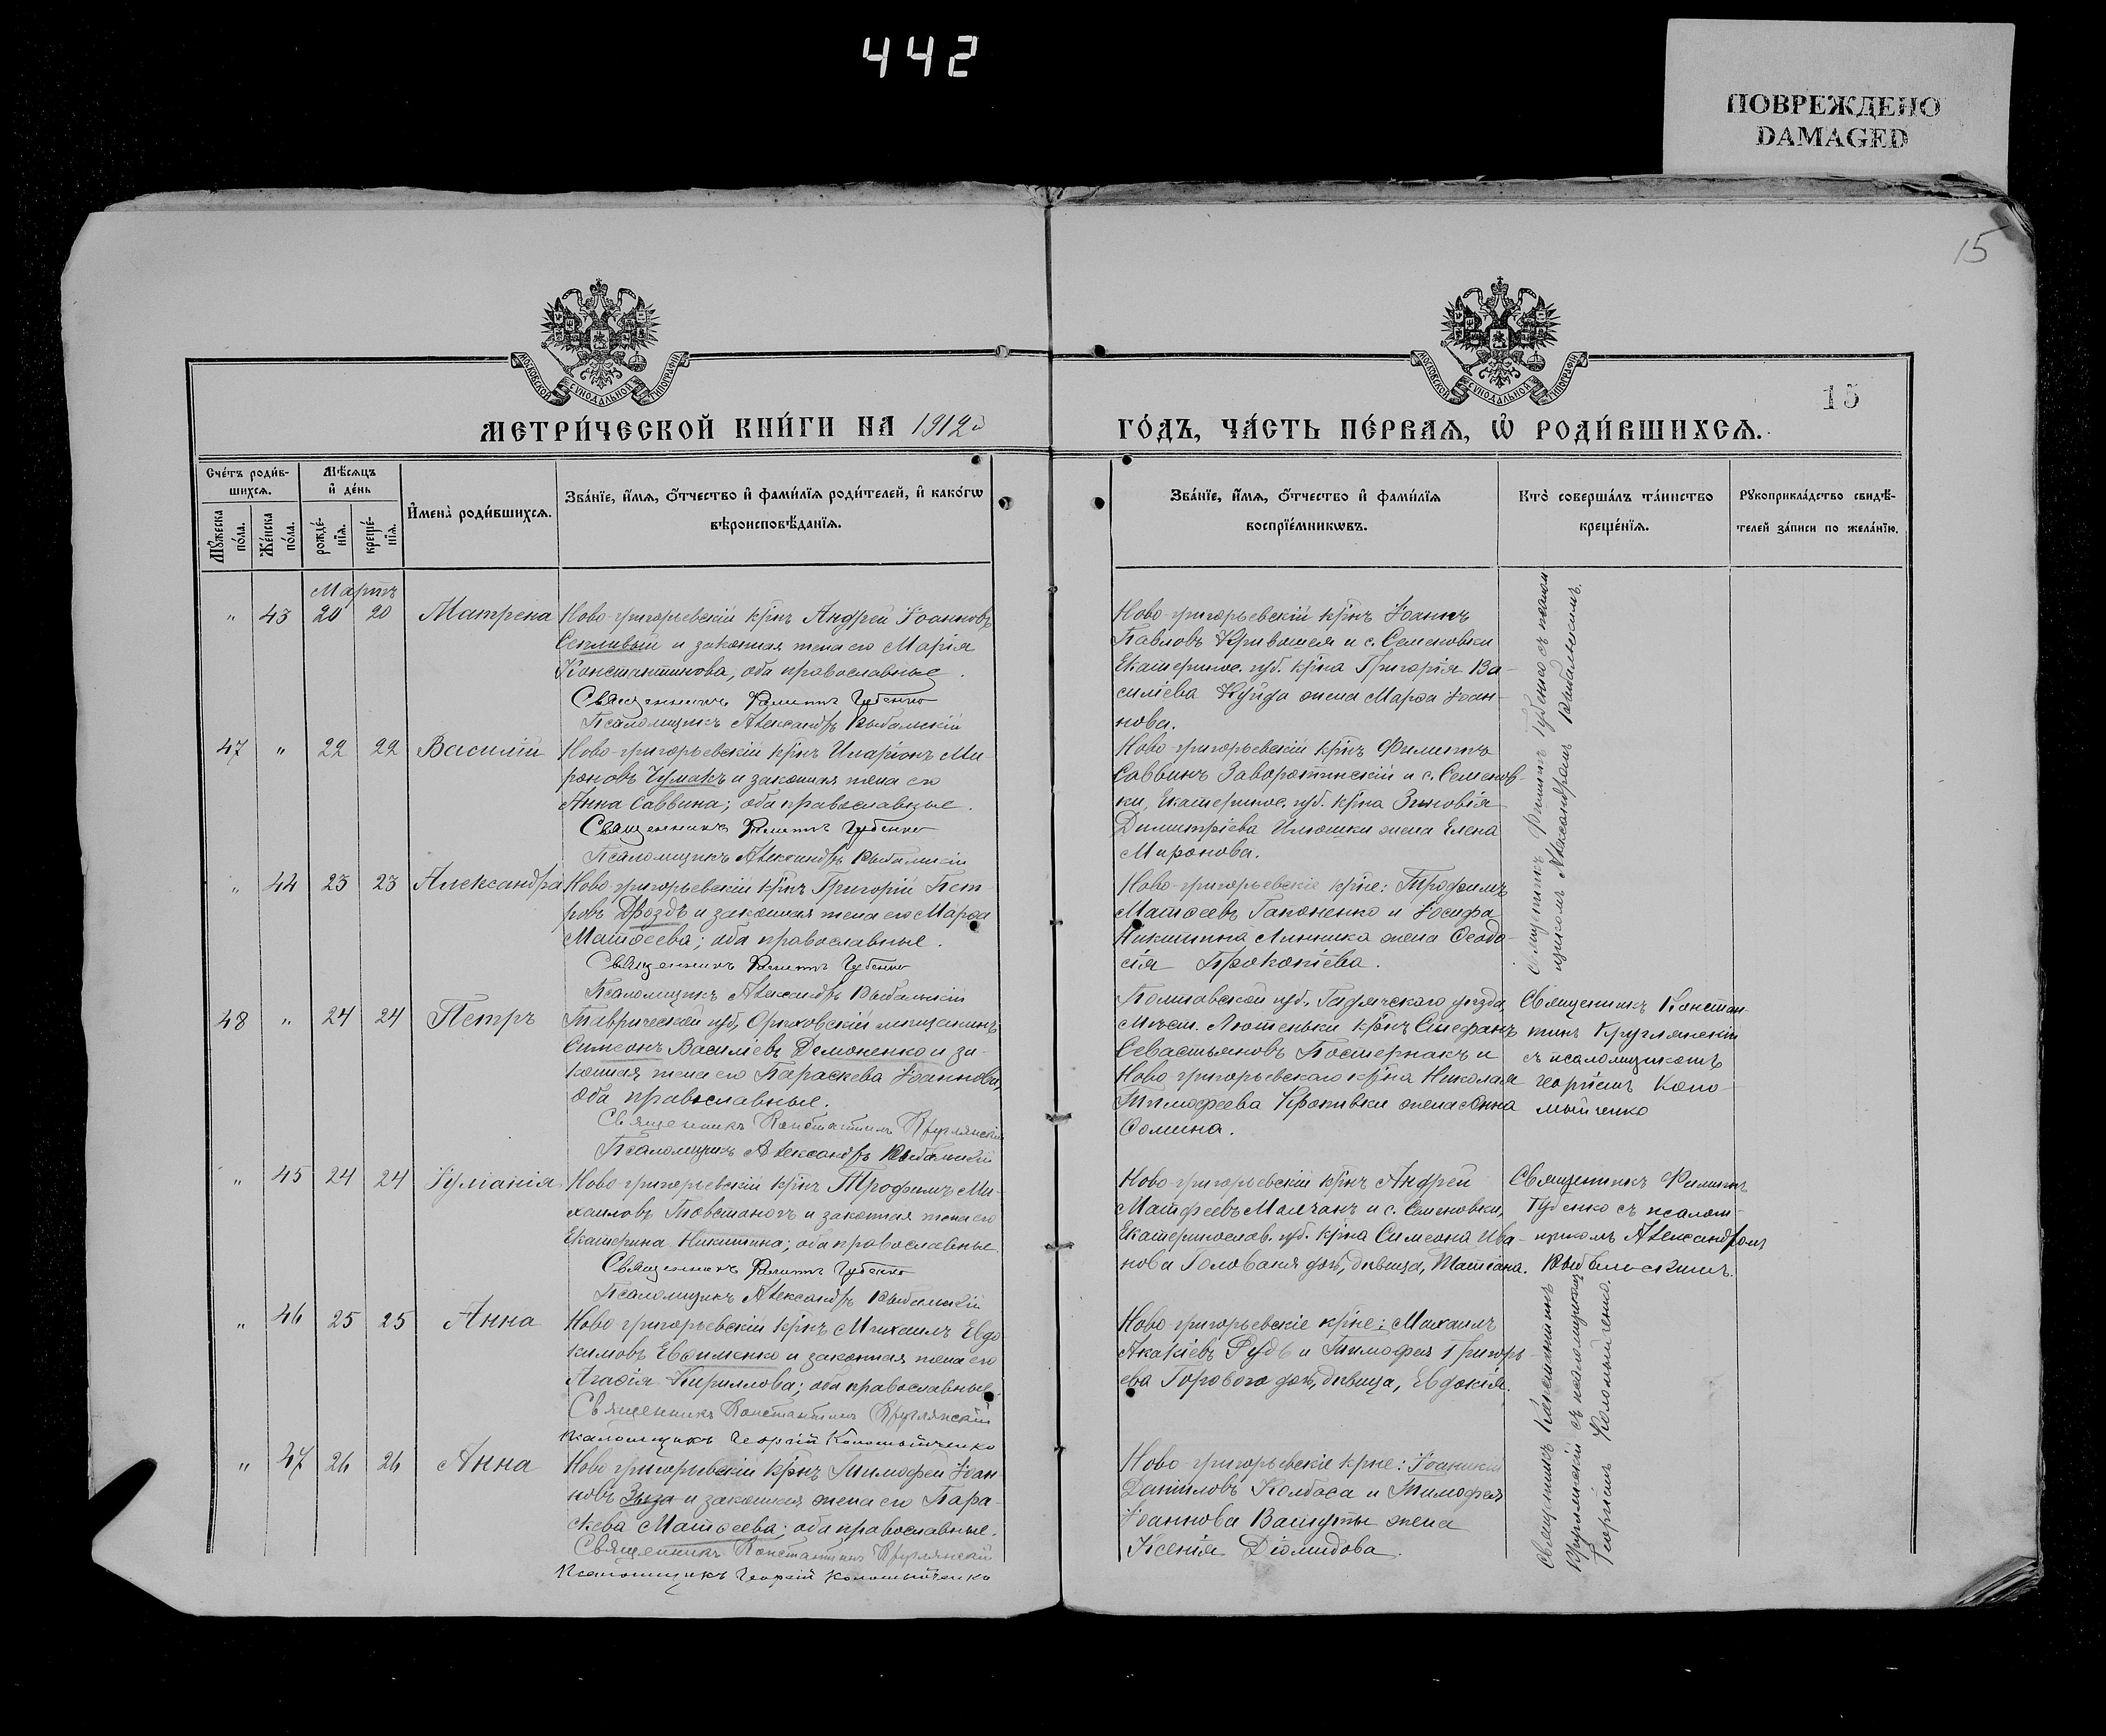 442
ПОВРЕЖДЕНО
DAMAGED
15
МОСКОВСКОЙ СѴНОДАЛЬНОЙ ТИПОГРАФІИ
МОСКОВСКОЙ СѴНОДАЛЬНОЙ ТИПОГРАФІИ
15
МЕТРИ́ЧЕСКОЙ КНИ́ГИ НА 1912й
ГО́ДЪ, ЧА́СТЬ ПЕ́РВАЯ, Ѡ РОДИ́ВШИХСЯ.
Сче́тъ роди́в-
шихся.
Мꙋ́жеска
по́ла.
Же́нска
по́ла.
Мѣ́сяцъ
и҆ де́нь
рожде́-
нїя.
креще́-
нїя.
И҆мена̀ роди́вшихся.
Зва́нїе, и҆́мя, ѻ҆́тчество и҆ фами́лїя роди́телей, и҆ како́гѡ
вѣроисповѣ́данїя.
Зва́нїе, и҆́мя, ѻ҆́тчество и҆ фами́лїя
воспрїе́мникѡвъ.
Кто̀ соверша́лъ та́инство
креще́нїя.
Рꙋкоприкла́дство свидѣ́-
телей за́писи по жела́нїю.
Мартъ
" 43 20 20 Матрена
Ново-григорьевскій кр̃нъ Андрей Іоанновъ
Сепливый и законная жена его Марія
Константинова, оба православные.
Священникъ Филиппъ Губенко
Псаломщикъ Александръ Выбальскій
Ново-григорьевскій кр̃нъ Іоаннъ
Павловъ Кривошея и с. Семеновки
Екатериносл. губ. кр̃на Григорія Ва-
силіева Куйда жена Марѳа Іоан-
нова.
47 " 22 22 Василій
Ново-григорьевскій кр̃нъ Иларіонъ Ми-
роновъ Чумакъ и законная жена его
Анна Саввина; оба православные.
Священникъ Филиппъ Губенко
Псаломщикъ Александръ Выбальскій
Ново-григорьевскій кр̃нъ Филиппъ
Саввинъ Заворотинскій и с. Семенов-
ки, Екатериносл. губ. кр̃на Зиновія
Димитріева Илюшки жена Елена
Миронова.
" 44 23 23 Александра
Ново-григорьевскій кр̃нъ Григорій Пет-
ровъ Дроздъ и законная жена его Марѳа
Матѳеева; оба православные.
Священникъ Филиппъ Губенко
Псаломщикъ Александръ Выбальскій
Ново-григорьевскіе кр̃не: Трофимъ
Матѳеевъ Гапоненко и Іосифа
Никитина Линника жена Ѳеодо-
сія Прокопіева.
Священникъ Филиппъ Губенко съ псалом-
щикомъ Александромъ Выбальскимъ.
48 " 24 24 Петръ
Таврической губ, Орѣховскій мѣщанинъ
Симеонъ Василіевъ Демоненко и за-
конная жена его Параскева Іоаннова,
оба православные.
Священникъ Константинъ Круглянскій
Псаломщикъ Александръ Выбальскій
Полтавской губ. Гадячского уѣзда,
Мѣст. Лютеньки кр̃нъ Стефанъ
Севастьяновъ Постернакъ и
Ново-григорьевскаго кр̃на Николая
Тимоѳеева Кропивки жена Анна
Ѳомина.
Священникъ Констан-
тинъ Круглянскій
съ псаломщикомъ
Георгіемъ Коло-
мытченко
" 45 24 24 Іуліанія
Ново-григорьевскій кр̃нъ Трофимъ Ми-
хаиловъ Товстаногъ и законная жена его
Екатерина Никитина; оба православные.
Священникъ Филиппъ Губенко
Псаломщикъ Александръ Выбальскій
Ново-григорьевскій кр̃нъ Андрей
Матфеевъ Молчанъ и с. Семеновки,
Екатеринослав. губ. кр̃на Симеона Ива-
нова Голованя дочь, дѣвица, Татіана.
Священникъ Филиппъ
Губенко съ псалом-
щикомъ Александромъ
Выбальскимъ.
" 46 25 25 Анна
Ново-григорьевскій кр̃нъ Михаилъ Евдо-
кимовъ Евѳименко и законная жена его
Агаѳія Кириллова; оба православные.
Священникъ Константинъ Круглянскій
Псаломщикъ Георгій Коломытченко
Ново-григорьевскіе кр̃не: Михаилъ
Акакіевъ Рудь и Тимофея Григорь-
ева Горового дочь, дѣвица, Евдокія.
" 47 26 26 Анна
Ново-григорьевскій кр̃нъ Тимофей Іоан-
новъ Зыза и законная жена его Пара-
скева Матѳеева; оба православные.
Священникъ Константинъ Круглянскій
Псаломщикъ Георгій Коломытченко
Ново-григорьевскіе кр̃не: Іоанникій
Даніиловъ Колбаса и Тимофея
Іоаннова Вашуты жена
Ксенія Діомидова.
Священникъ Константинъ
Круглянскій съ псаломщикомъ
Георгіемъ Коломытченко.